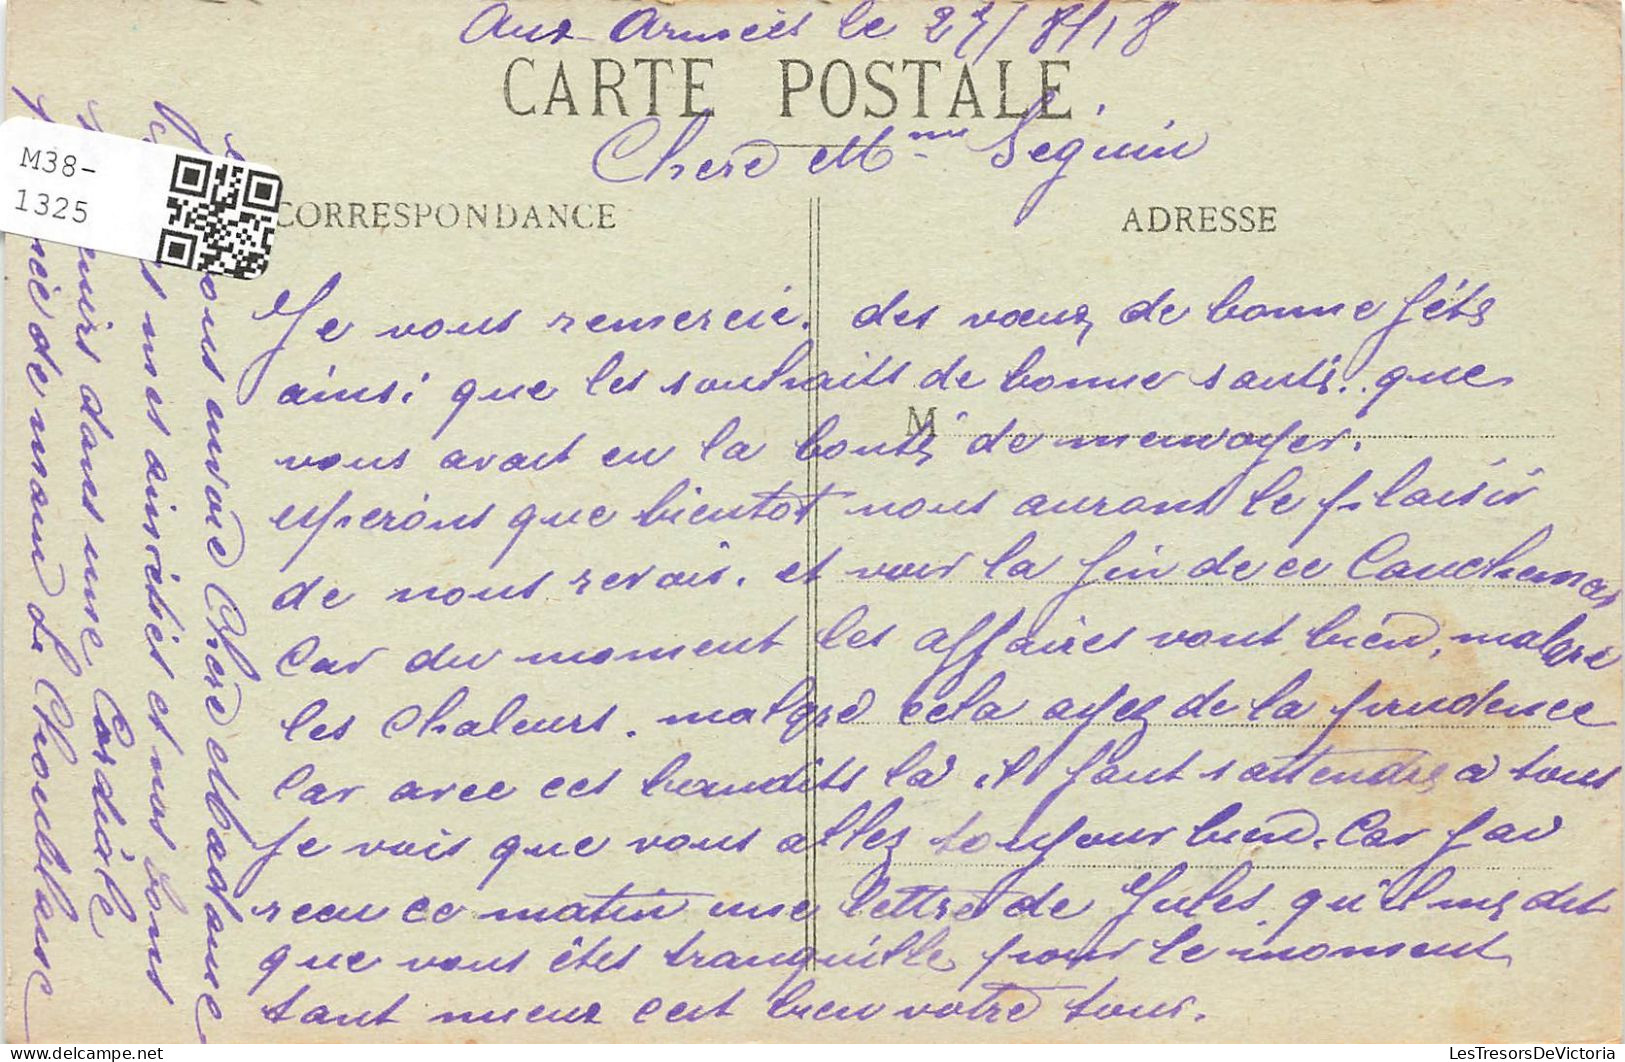 Aux Armées le 27/8/18
CARTE POSTALE
Chere Mme Seguin
CORRESPONDANCE
ADRESSE
M
Je vous remercie. des vœux de bonne fête
ainsi que les souhaits de bonne santé. que
vous avait eu la bonté de menvoyer.
esperons que bientot nous aurons le plaisir
de nous revois. et voir la fin de ce Cauchemar
Car du moment les affaires vont bien, malgre
les chaleurs. malgre cela ayez de la prudence
Car avec ces bandits la il faut sattendre a tous
Je vois que vous allez toujour bien. Car jai
recu ce matin une lettre de Jules qu'il me dit
que vous êtes tranquille pour le moment
tant mieux cest bien votre tour.
vous envoie Chere Madame
mes amitiés et mes bons
dans une Cordiale
de main L. Choublanc
M38-
1325
LesTresorsDeVictoria.com